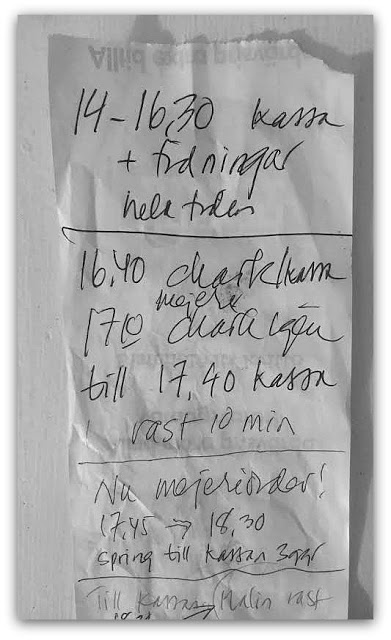 14-16,30 kassa
+ tidningar
hela tiden
16,40 chark/kassa
mejeri
17 10 chark igen
till 17,40 kassa
1 rast 10 min
Nu mejeriorder!
17,45 → 18,30
spring till kassan 3 ggr
Till kassan → Malin rast